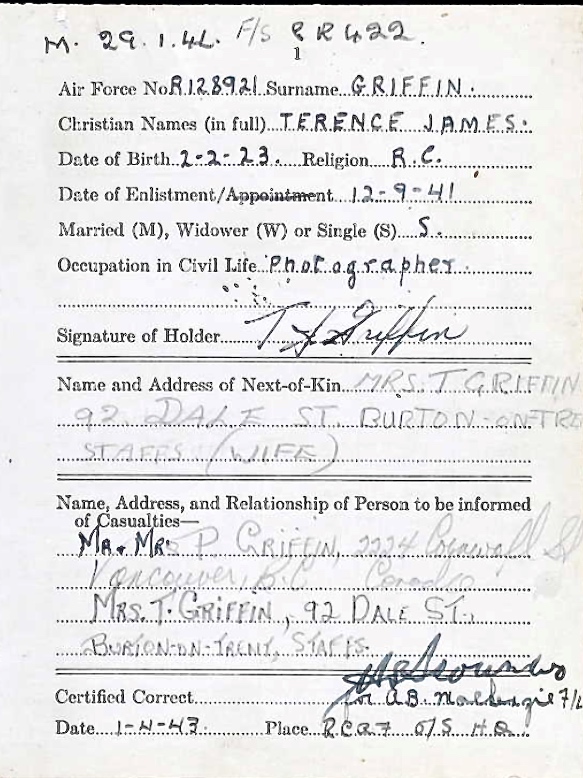 M. 29.1.44. F/S PR422.
1
Air Force No. R.128921 Surname GRIFFIN.
Christian Names (in full) TERENCE JAMES.
Date of Birth 2-2-23. Religion R.C.
Date of Enlistment/Appointment 12-9-41
Married (M), Widower (W) or Single (S) S.
Occupation in Civil Life Photographer
Signature of Holder T J Griffin
Name and Address of Next-of-Kin MRS. T GRIFFIN
92 DALE ST. BURTON-ON-TRE
STAFFS (WIFE)
Name, Address, and Relationship of Person to be informed
of Casualties—
MR & MRS P. GRIFFIN, 2224 Cornwall St
Vancouver, B.C. Canada
MRS. T. GRIFFIN, 92 DALE ST.,
BURTON-ON-TRENT, STAFFS.
Certified Correct
for A.B. Mackenzie F/L
Date 1-4-43. Place RCAF O/S H.Q.